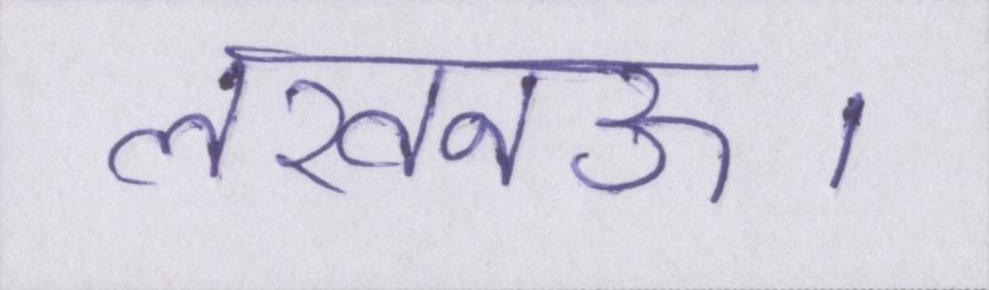 लखनऊ।